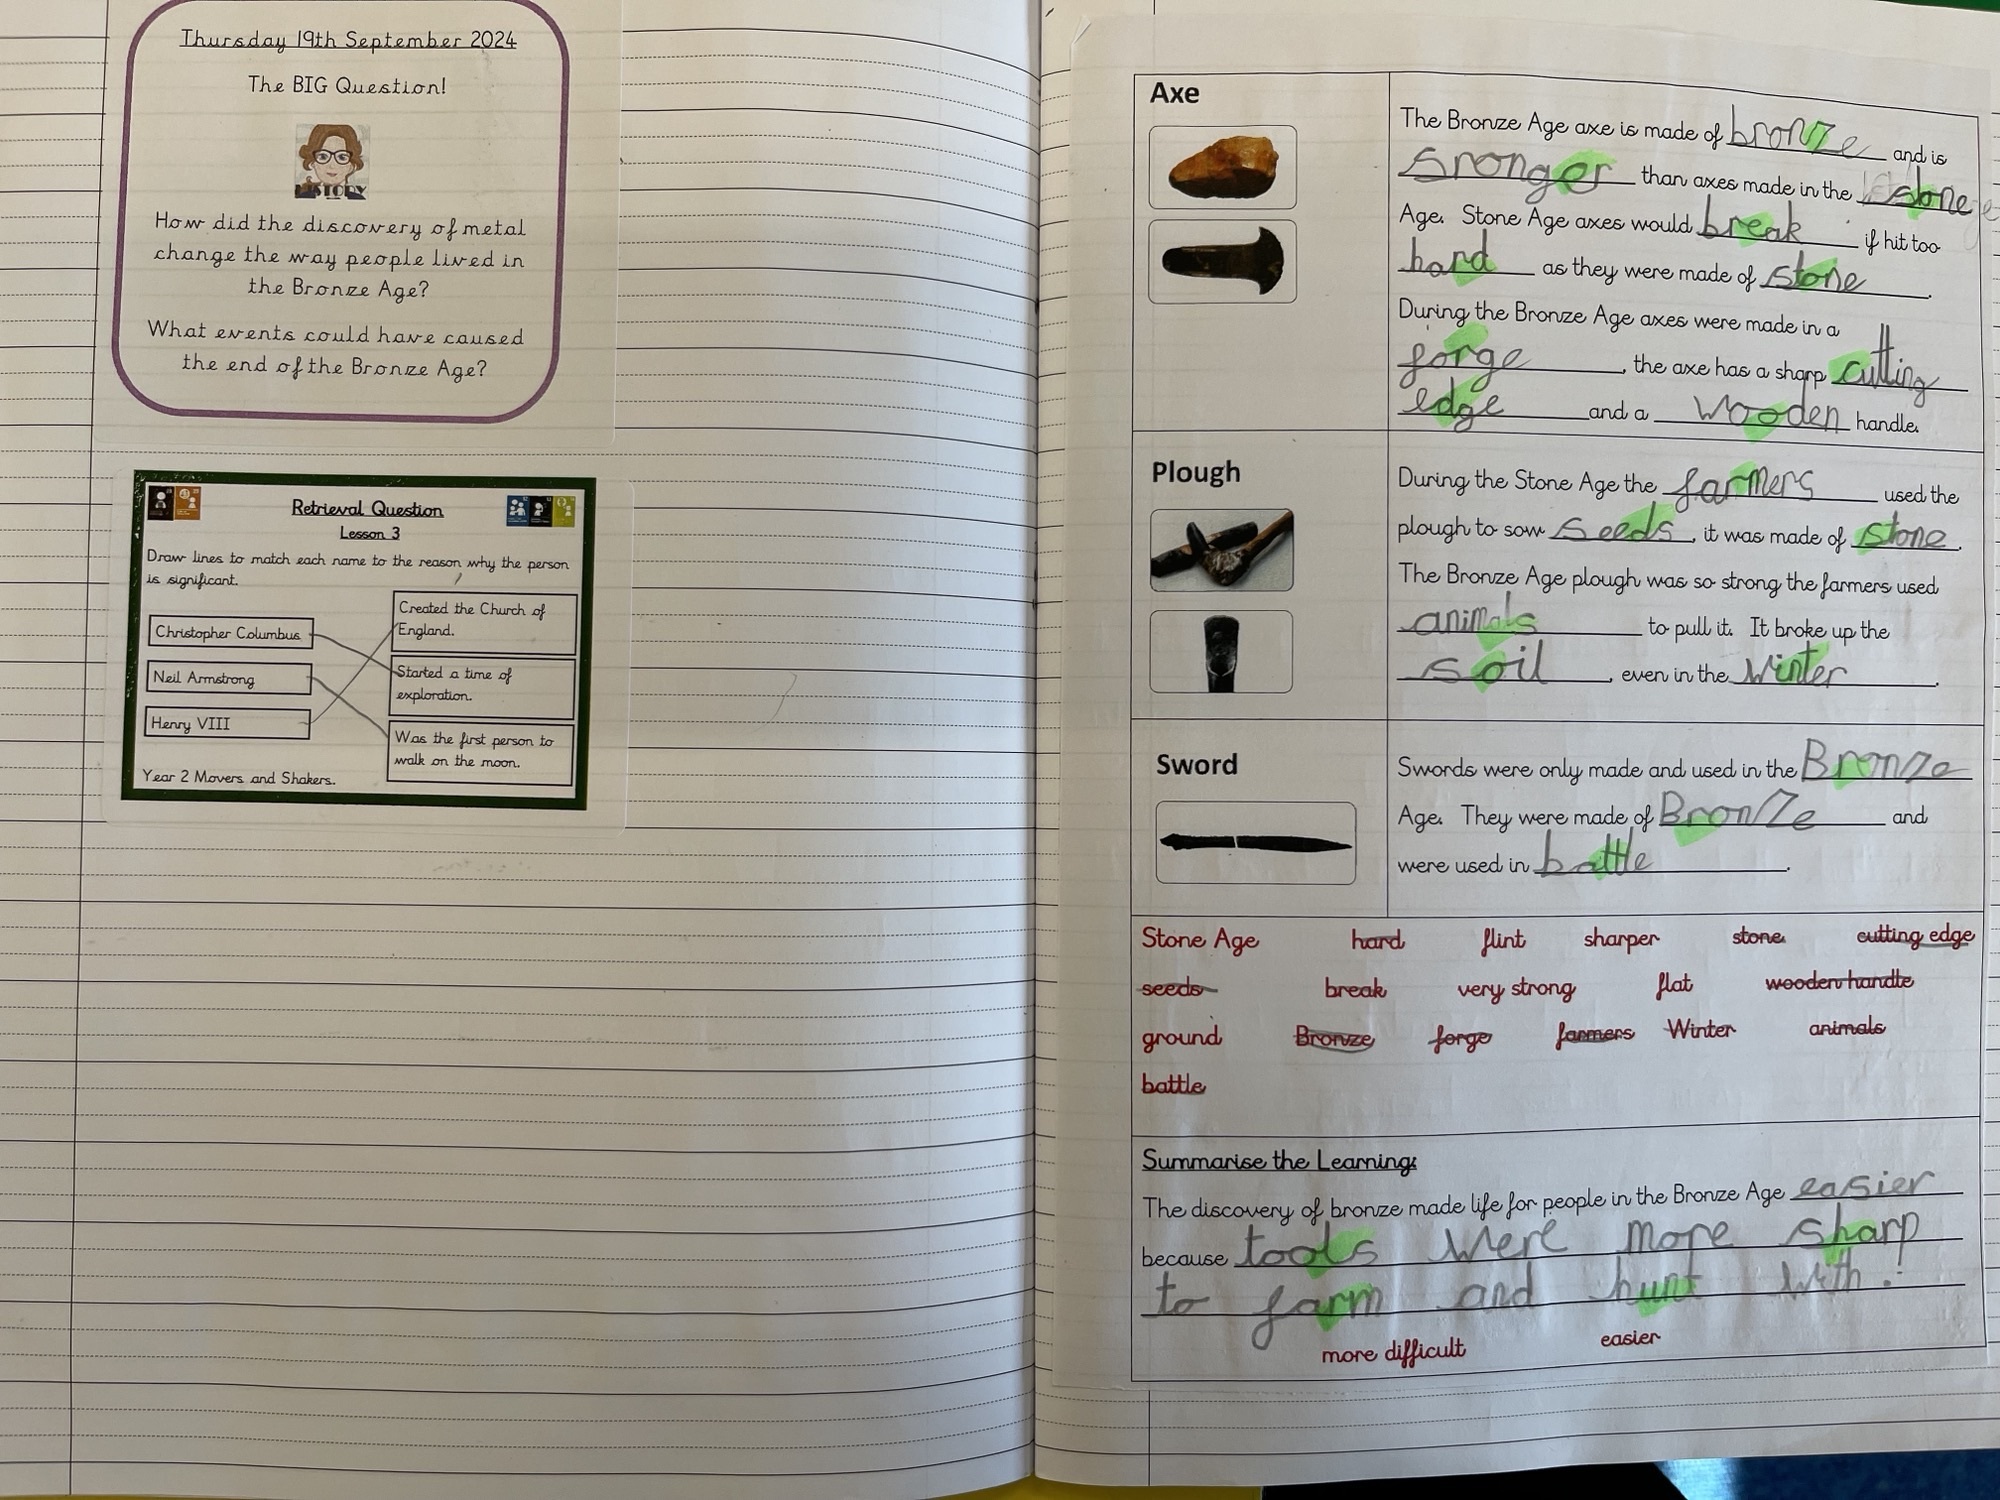 Thursday 19th September 2024
The BIG Question!
HISTORY
How did the discovery of metal
change the way people lived in
the Bronze Age?
What events could have caused
the end of the Bronze Age?
Retrieval Question
Lesson 3
Draw lines to match each name to the reason why the person
is significant.
Christopher Columbus
Neil Armstrong
Henry VIII
Created the Church of
England.
Started a time of
exploration.
Was the first person to
walk on the moon.
Year 2 Movers and Shakers.
Axe
The Bronze Age axe is made of bronze and is
sronger than axes made in the stone
Age. Stone Age axes would break if hit too
hard as they were made of stone.
During the Bronze Age axes were made in a
forge, the axe has a sharp cutting
edge and a wooden handle.
Plough
During the Stone Age the farmers used the
plough to sow seeds, it was made of stone.
The Bronze Age plough was so strong the farmers used
animals to pull it. It broke up the
soil, even in the Winter.
Sword
Swords were only made and used in the Bronze
Age. They were made of Bronze and
were used in battle.
Stone Age hard flint sharper stone cutting edge
seeds break very strong flat wooden handle
ground Bronze forge farmers Winter animals
battle
Summarise the Learning:
The discovery of bronze made life for people in the Bronze Age easier
because tools were more sharp
to farm and hunt with.!
more difficult easier